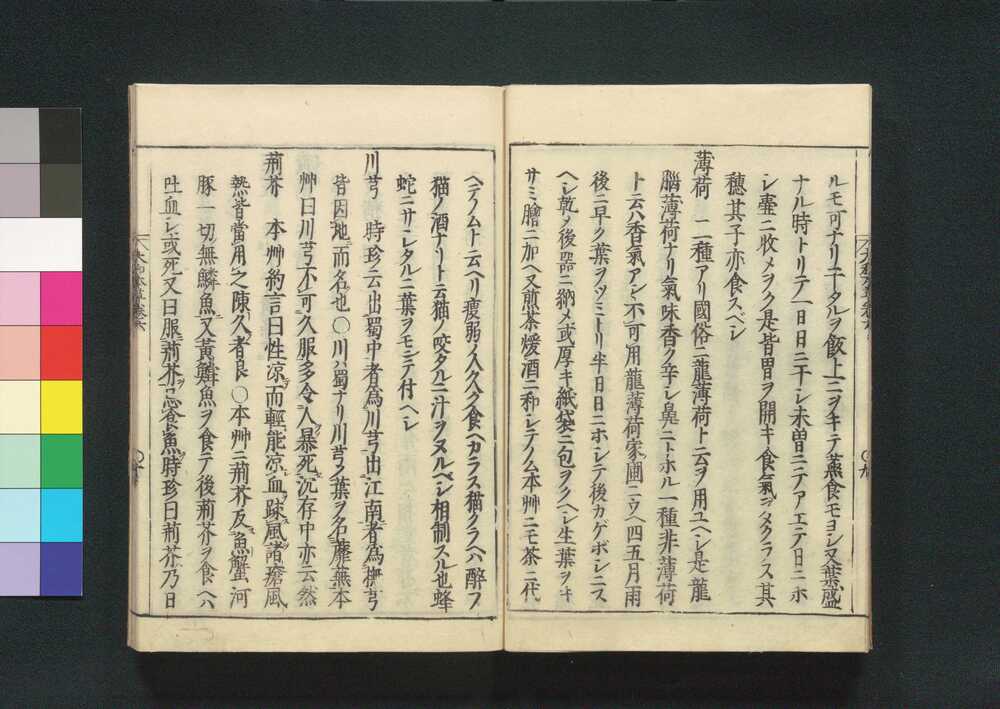 ルモ可ナリ二十タルヲ飯上ニヲキテ蒸食モヨシ又葉盛
ナル時トリテ一日日ニ干シ未曽ニテアエテ日ニホ
シ壷ニ收メヲク是皆胃ヲ開キ食氣ヲタクラス其
穂其子亦食スベシ
薄荷 二種アリ國俗ニ龍薄荷ト云ヲ用ユヘシ是龍
腦薄荷ナリ氣味香ク辛シ鼻ニトホル一種非薄荷
ト云ハ香氣アシヽ不可用龍薄荷家圃ニウヘ四五月雨
後ニ早ク葉ヲツミトリ半日日ニホシテ後カゲボシニス
ヘシ乾ノ後器ニ納メ或厚キ紙袋ニ包ヲクヘシ生葉ヲキ
サミ膾ニ加ヘ又煎茶煖酒ニ和シテノム本艸ニモ茶ニ代
大和本草卷六
〇九
ヘテノムト云ヘリ瘦弱ノ人久ク食ヘカラス猫クラヘハ醉フ
猫ノ酒ナリト云猫ノ咬タルニ汁ヲヌルベシ相制スル也蜂
蛇ニサシタルニ葉ヲモンデ付ヘシ
川芎 時珍云出蜀中者為川芎出江南者為撫芎
皆因地而名也〇川ハ蜀ナリ川芎ノ葉ヲ名蘼蕪本
艸曰川芎不可久服多令人暴死沉存中亦云然
荊芥 本艸約言曰性凉而輕能凉血疎風諸瘡風
熱皆當用之陳久者良〇本艸ニ荊芥反魚蟹河
豚一切無鱗魚又黃鱨魚ヲ食テ後荊芥ヲ食ヘハ
吐血シ或死又曰服荊芥忌食魚時珍曰荊芥乃日
大和本草卷六
〇十